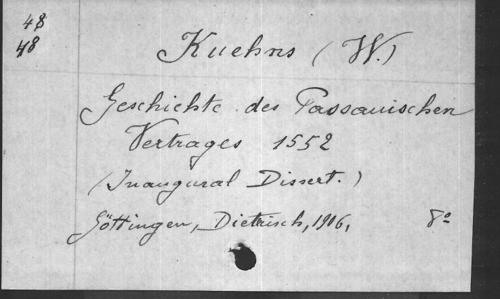 48
48
Kuehns (W.)
Geschichte des Passauischen
Vertrages 1552
(Inaugural Dissert.)
Göttingen, Dietrisch, 1906, 8°